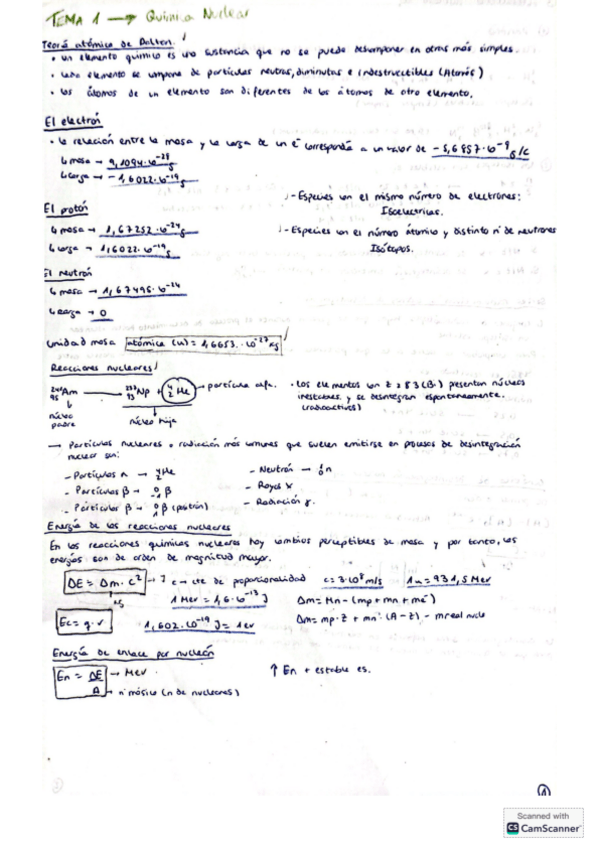 TEMA 1 → Química Nuclear
Teoría atómica de Dalton.
• Un elemento químico es una sustancia que no se puede descomponer en otras más simples.
• Cada elemento se compone de partículas neutras, diminutas e indestructibles (Átomos)
• Los átomos de un elemento son diferentes de los átomos de otro elemento.
El electrón
• La relación entre la masa y la carga de un e⁻ corresponde a un valor de -5,6857·10⁻⁹ g/C
↳ masa → 9,1094·10⁻²⁸
↳ carga → -1,6022·10⁻¹⁹
- Especies con el mismo número de electrones:
Isoelectrónicas.
El protón
↳ masa → 1,67252·10⁻²⁴ g
↳ carga → 1,6022·10⁻¹⁹
- Especies con el número atómico y distinto nº de neutrones
Isótopos.
El neutrón
↳ masa → 1,67495·10⁻²⁴
↳ carga → 0
Unidad masa atómica (u) = 1,6653·10⁻²⁷ kg
Reacciones nucleares
²⁴¹₉₅Am → ²³⁷₉₃Np + ⁴₂He → partícula alfa.
núcleo padre
núcleo hija
• Los elementos con Z ≥ 83 (Bi) presentan núcleos
inestables y se desintegran espontáneamente.
(radioactivos)
→ Partículas nucleares o radiación más comunes que suelen emitirse en procesos de desintegración
nuclear son:
- Partículas α → ⁴₂He
- Partículas β → ⁰₋₁β
- Partículas β → ⁰₁β (positrón)
- Neutrón → ¹₀n
- Rayos X
- Radiación γ.
Energía de las reacciones nucleares
En las reacciones químicas nucleares hay cambios perceptibles de masa y por tanto, las
energías son de orden de magnitud mayor.
ΔE = Δm · c² → J
kg
c → cte de proporcionalidad c = 3·10⁸ m/s 1u = 931,5 Mev
1 Mev = 1,6·10⁻¹³ J
Δm = Mn - (mp + mn + me⁻)
Ec = q · v
1,602·10⁻¹⁹ J = 1 ev
Δm = mp · Z + mn · (A - Z) - mreal
Energía de enlace por nucleón
En = ΔE → Mev
A → nº másico (n de nucleones)
↑ En + estable es.
1
Scanned with
CS CamScanner